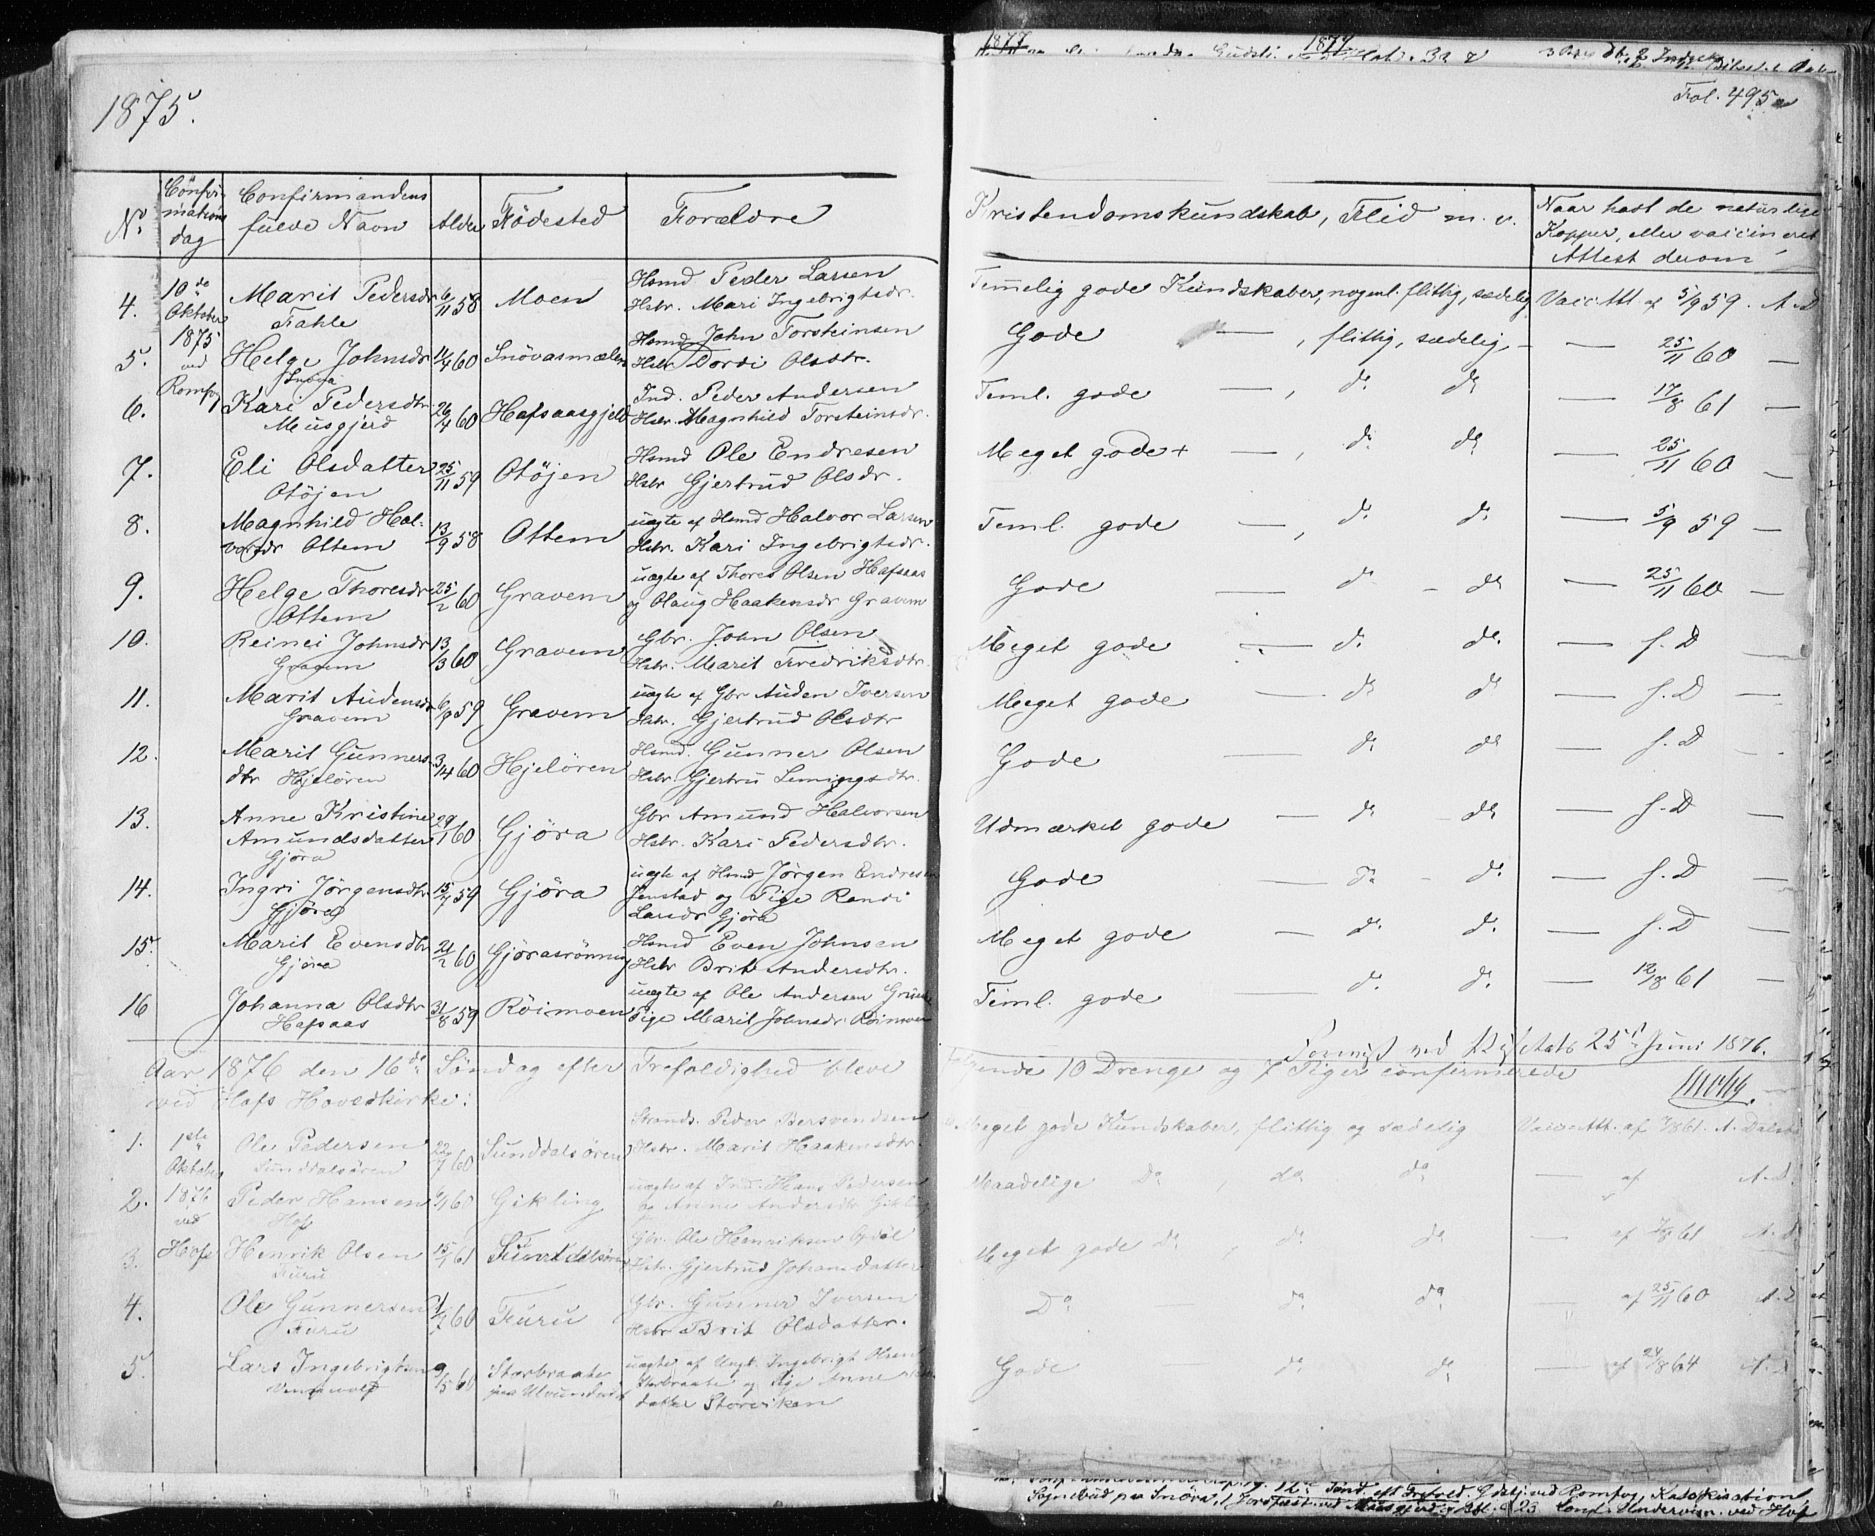 1875.
Fol. 495
No
Confir-
mations
dag
Confirmandens
fulde Navn
Alder
Födested
Forældre
Kristendomskundskab, Flid m. v.
Naar havt de naturlige
Kopper, eller vaccineret
Attest derom
4. 10de Oktober Marit Pedersdr Fahle 6/11 58 Moen Hsmd Peder Larsen Hstr. Mari Ingebrigtsdr. Temmelig gode Kundskaber, nogenl. flittig, sædelig Vacc. Att. af 5/9 59. A. D
5. 1875 ved Helge Johnsdr Snöva 11/4 60 Snövasmælen Hsmd John Torsteinsen Hstr Dordi Olsdtr. Gode — , flittig, sædelig — 25/11 60 —
6. Romfog Kari Pedersdtr Musgjerd 26/4 60 Hafsaasgjeld Ind. Peder Andersen Hstr. Magnhild Torsteinsdr. Teml. gode — , do do — 17/8 61 —
7. Eli Olsdatter Otöjen 25/11 59 Otöjen Hsmd Ole Endresen Hstr Gjertrud Olsdr. Meget gode + — , do do — 25/11 60 —
8. Magnhild Hal-
vorsdr Ottem 13/9 58 Ottem uægte af Hsmd Halvor Larsen Hstr. Kari Ingebrigtsdr. Teml. gode — , do do — 5/9 59 —
9. Helge Thoresdr Ottem 25/2 60 Gravem uægte af Thores Olsen Hafsaas og Olaug Haakensdr Gravem Gode — do – do — 25/11 60 —
10. Reinei Johnsdr Gravem 13/3 60 Gravem Gbr. John Olsen Hstr. Marit Fredriksdtr. Meget gode — do do — f. D —
11. Marit Audensdr Gravem 6/9 59 Gravem uægte af Gbr Auden Iversen Hstr. Gjertrud Olsdtr Meget gode — do do — f. D —
12. Marit Gunners-
dtr Hjelören 3/4 60 Hjelören Hsmd. Gunner Olsen Hstr. Gjertru Lemingsdtr. Gode — do do — f. D
13. Anne Kristine
Amundsdatter Gjöra 29/1 60 Gjöra Gbr Amund Halvorsen Hstr. Kari Pedersdtr. Udmærket gode — do – do — f. D
14. Ingri Jörgensdtr Gjöra 15/7 59 Gjöra uægte af Hsmd Jörgen Endresen Jenstad og Pige Randi Larsdr Gjöra Gode — do – do — f. D
15. Marit Evensdtr Gjöra 21/2 60 Gjörasrönning Hsmd Even Johnsen Hstr Brit Andersdtr. Meget gode — do do — f. D —
16 Johanna Olsdtr Hafsaas 31/8 59 Röimoen uægte af Ole Andersen Pige Marit Johnsdr Röimoen Teml. gode — do do — 12/8 61 —
ved 25 Juni 1876.
Aar 1876 den 16de Söndag efter Trefoldighed bleve følgende 10 Drenge og 7 Piger confirmerede
ved Hofs Hovedkirke:
1. 1ste Oktober Ole Pedersen Sunddalsören 22/7 60 Sunddalsören Strands. Peder Bersvendsen Hstr. Marit Haakensdtr. Meget gode Kundskaber, flittig og sædelig Vacc. Att. af 7/8 61. A.
2. 1876 ved Peder Hansen Hof 60 Gikling uægte af Ind. Hans Pedersen og Anne Andersdtr Maadelige Do , do do — af A. D.
3. Hof Henrik Olsen Furu 15/1 61 Sunddalsören Gbr. Ole Henriksen Opdöl Hstr. Gjertrud Johansdatter Meget gode do , do do — af 7/8 61 A. D
4. Ole Gunnersen Furu 60 Furu Gbr. Gunner Iversen Hstr Brit Olsdatter. Do — do do — af 25/11 60 A. D
5. Lars Ingebrigtsen 9/5 60 Storbraate uægte af Ungk. Ingebrigt Olsen Storbraate og Pige Anne datter Storviken Gode — do do — af 24/8 64 A. D